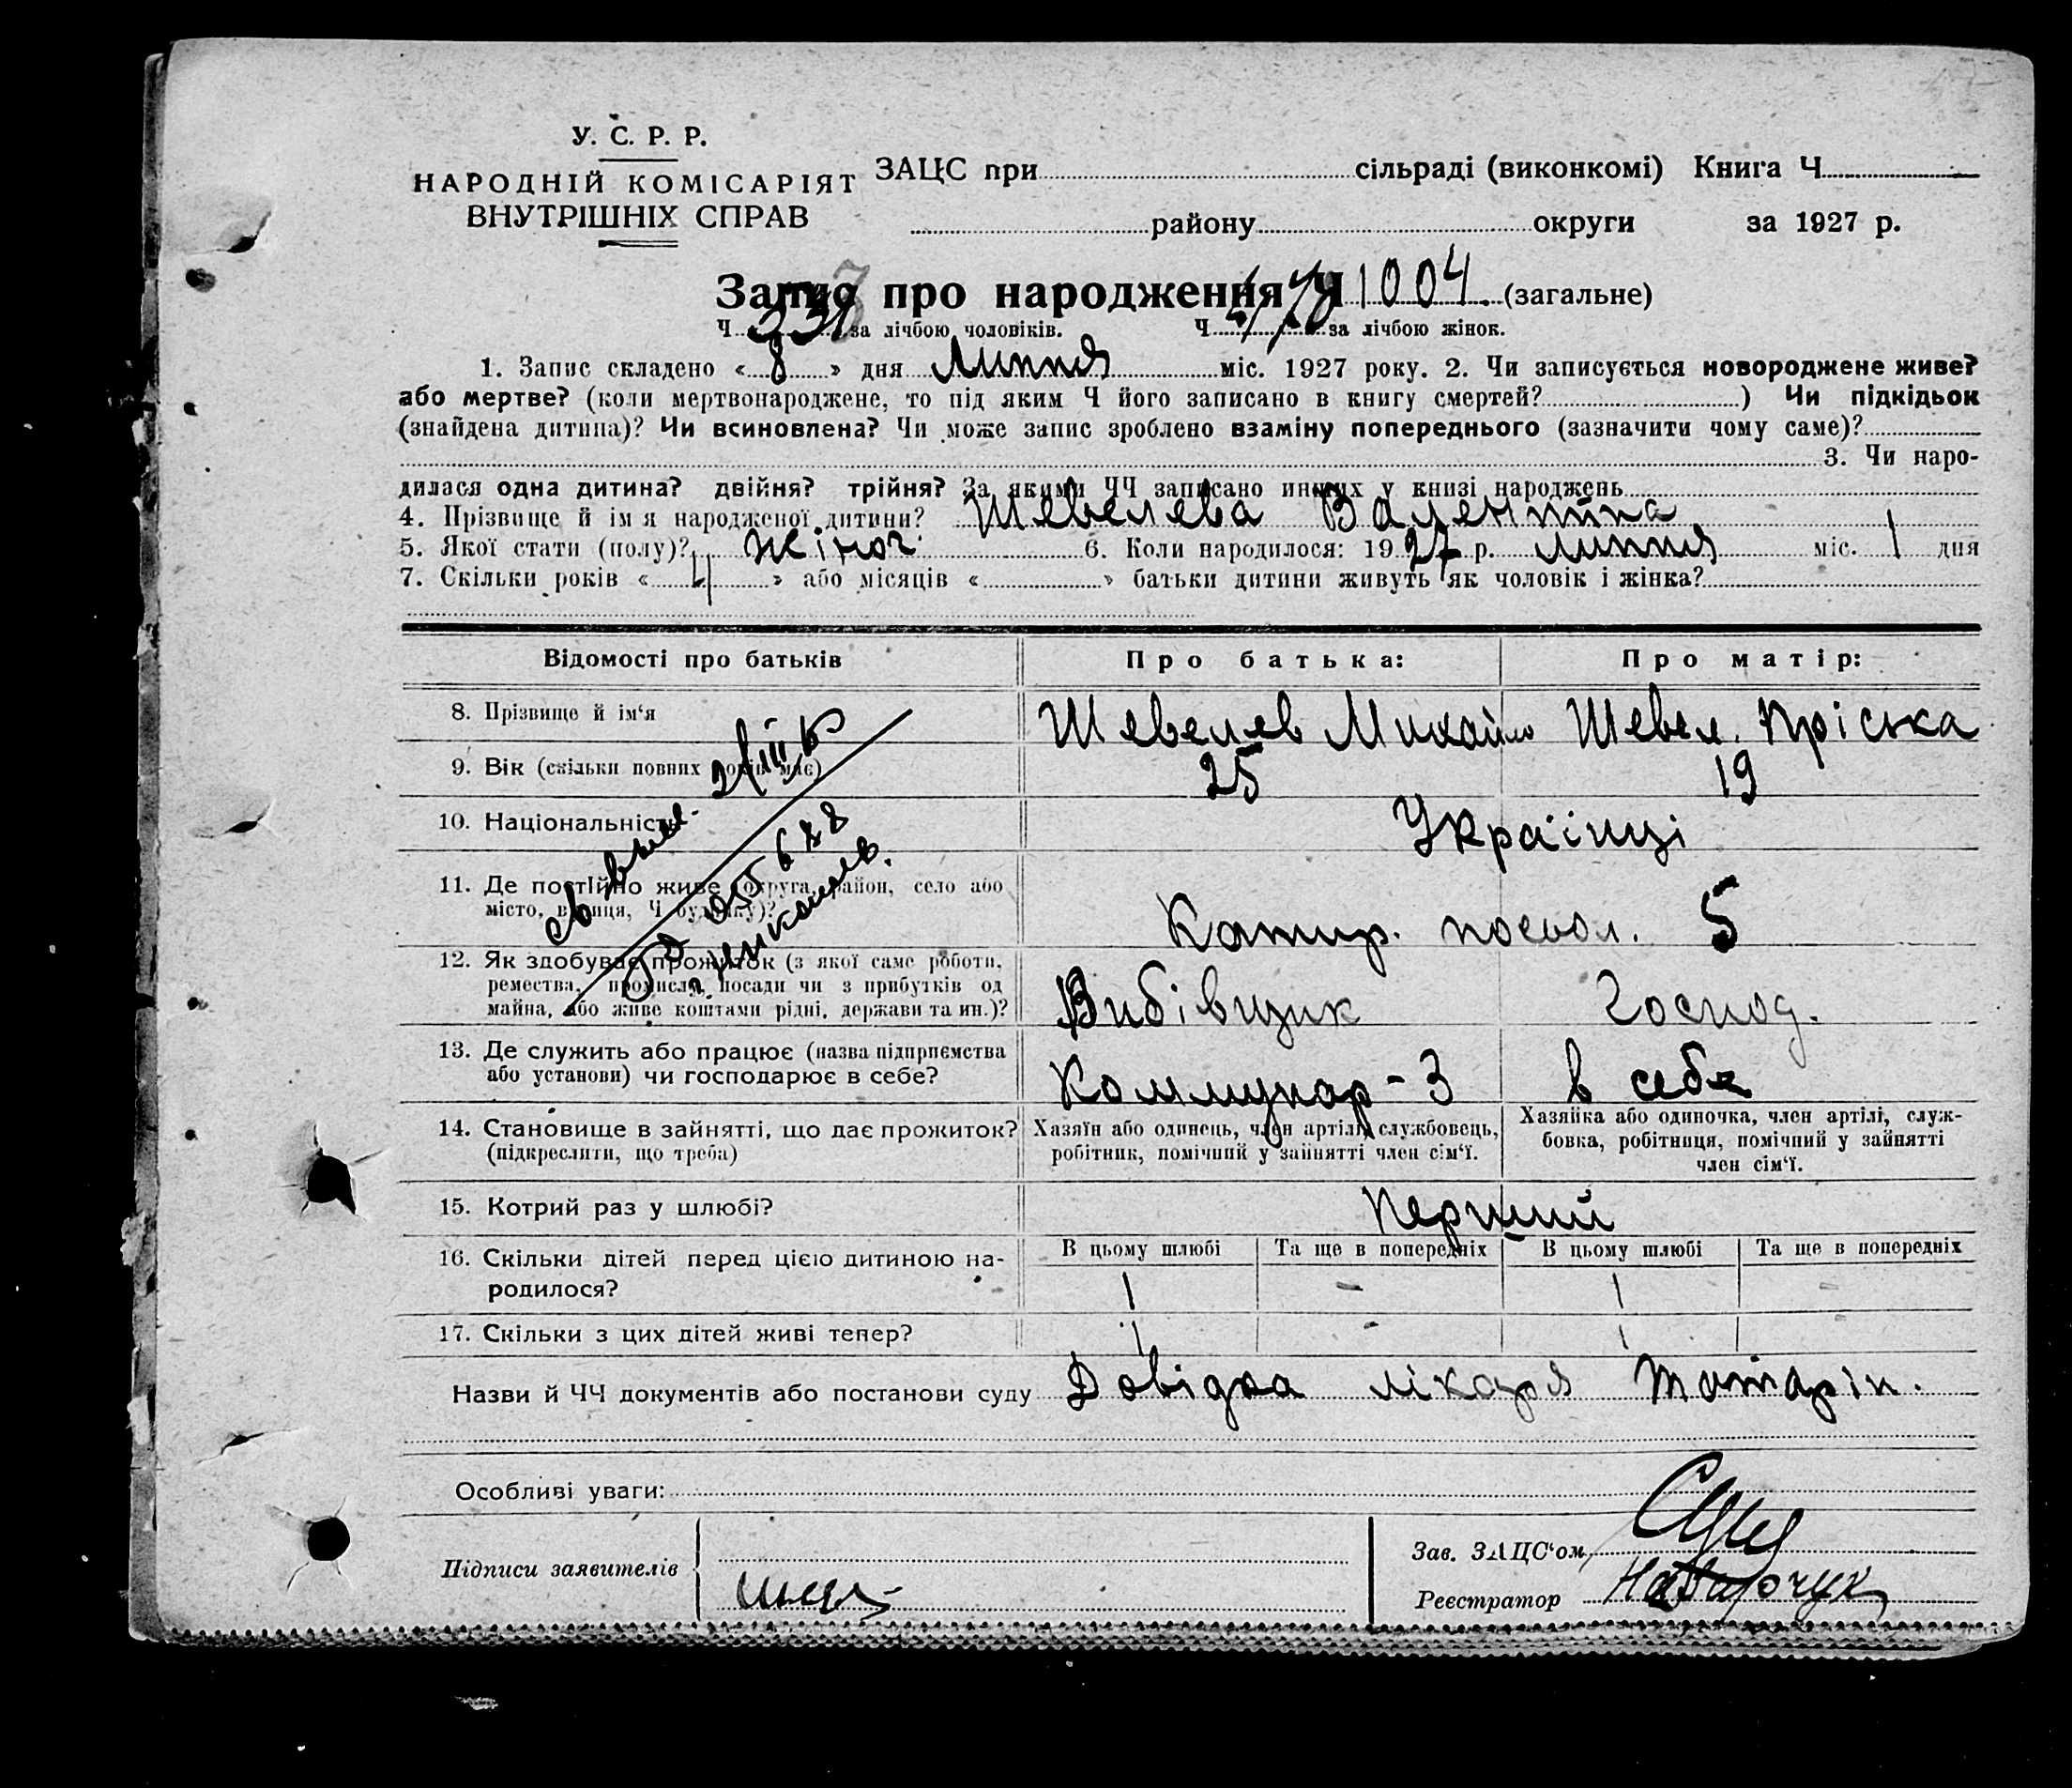 У. С. Р. Р.
НАРОДНІЙ КОМІСАРІЯТ
ВНУТРІШНІХ СПРАВ
ЗАЦС при сільраді (виконкомі) Книга Ч
району округи за 1927 р.
Запис про народження Ч 1004 (загальне)
Ч за лічбою чоловіків. Ч за лічбою жінок.
1. Запис складено « 8 » дня Липня міс. 1927 року. 2. Чи записується новороджене живе?
або мертве? (коли мертвонароджене, то під яким Ч його записано в книгу смертей? ) Чи підкідьок
(знайдена дитина)? Чи всиновлена? Чи може запис зроблено взаміну попереднього (зазначити чому саме)?
3. Чи наро-
дилася одна дитина? двійня? трійня? За якими ЧЧ записано инших у книзі народжень
4. Прізвище й ім я народженої дитини? Шевелева Валентина
5. Якої стати (полу)? жіноч. 6. Коли народилося: 1927 р. липня міс. 1 дня
7. Скільки років « 4 » або місяців « » батьки дитини живуть як чоловік і жінка?
Відомості про батьків Про батька: Про матір:
8. Прізвище й ім‘я Шевелев Михайло Шевел. Пріська
9. Вік (скільки повних років має) 25 19
10. Національність Українці
11. Де постійно живе (округа, район, село або
місто, вулиця, Ч будинку)? Катир. посьол. 5
12. Як здобуває прожиток (з якої саме роботи,
ремества, промислу, посади чи з прибутків од
майна, або живе коштами рідні, держави та ин.)? Вибівщик Господ.
13. Де служить або працює (назва підприємства
або установи) чи господарює в себе? Коммунар-3 в себе
14. Становище в зайнятті, що дає прожиток?
(підкреслити, що треба)
Хазяїн або одинець, член артілі, службовець,
робітник, помічний у зайнятті член сім‘ї.
Хазяйка або одиночка, член артілі, служ-
бовка, робітниця, помічний у зайнятті
член сім‘ї.
15. Котрий раз у шлюбі? Перший
В цьому шлюбі Та ще в попередніх В цьому шлюбі Та ще в попередніх
16. Скільки дітей перед цією дитиною на-
родилося? 1 - 1 -
17. Скільки з цих дітей живі тепер? 1 - 1
Назви й ЧЧ документів або постанови суду Довідка лікаря Татарін.
Особливі уваги:
Підписи заявителів
Зав. ЗАЦС‘ом
Реєстратор